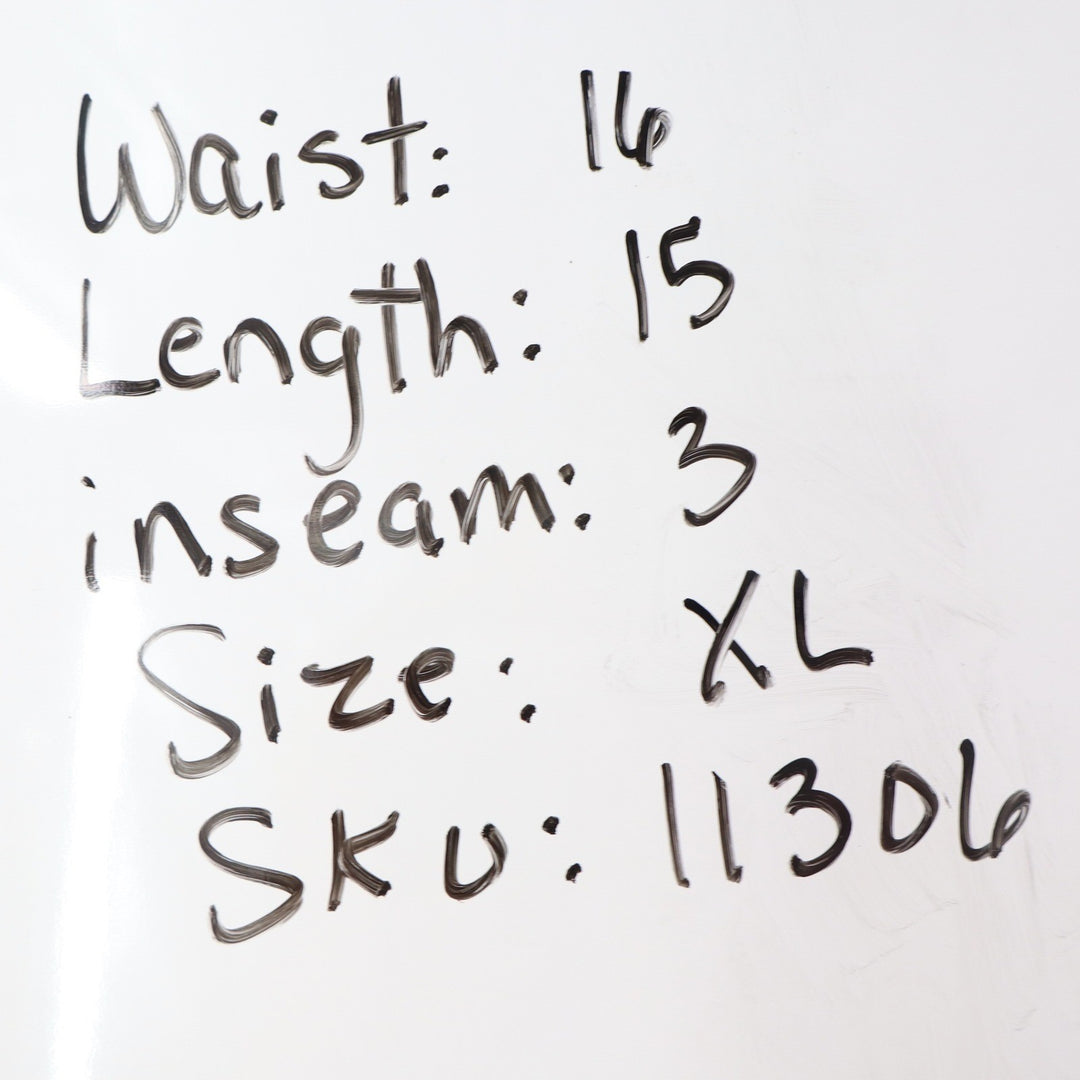 Waist: 16
Length: 15
inseam: 3
Size: XL
SKU: 11306